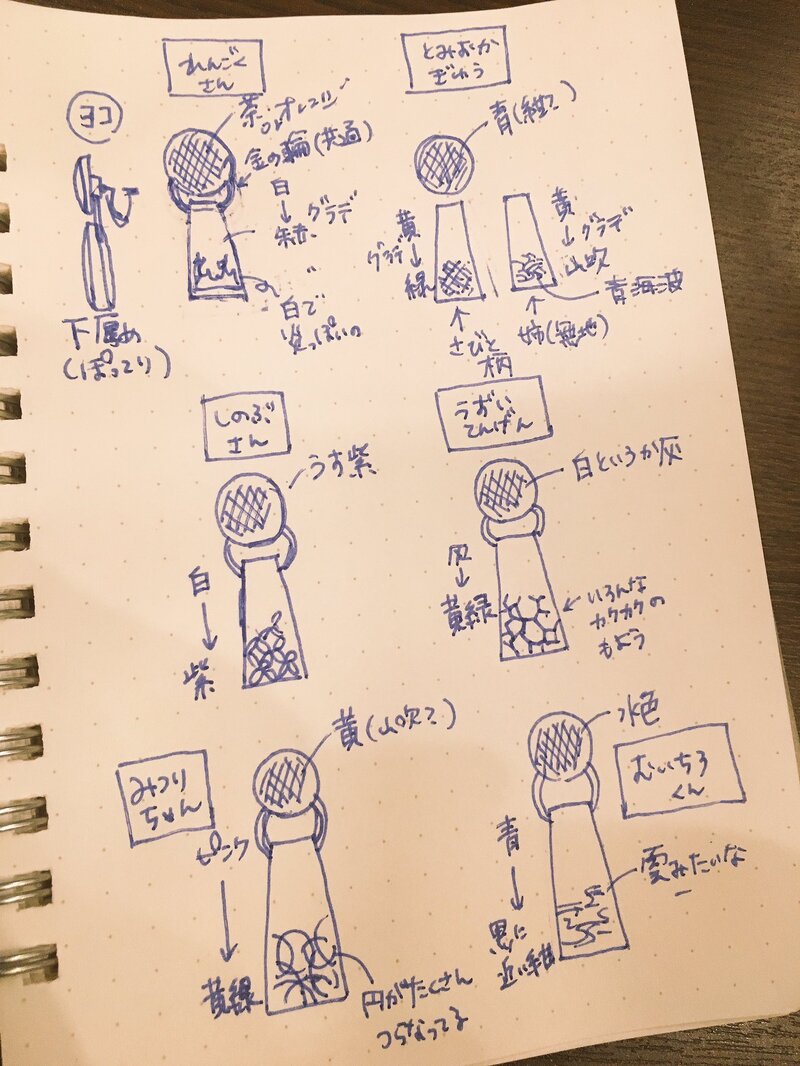 れんごく
さん
とみおか
ぎゆう
ヨコ
茶 or オレンジ
金の輪(共通)
白
↓
グラデ
朱赤
白で
炎っぽいの
下 厚め
(ぽってり)
黄
↓
緑
グラデ
↑
さびと
柄
黄
↓
グラデ
山吹
青海波
↑
姉(無地)
しのぶ
さん
うす紫
白
↓
紫
うずい
てんげん
白というか灰
灰
↓
黄緑
いろんな
カクカクの
もよう
みつり
ちゃん
黄(山吹?)
ピンク
↓
黄緑
円がたくさん
つらなってる
むいちろ
くん
水色
青
↓
黒に
近い紺
雲みたいな